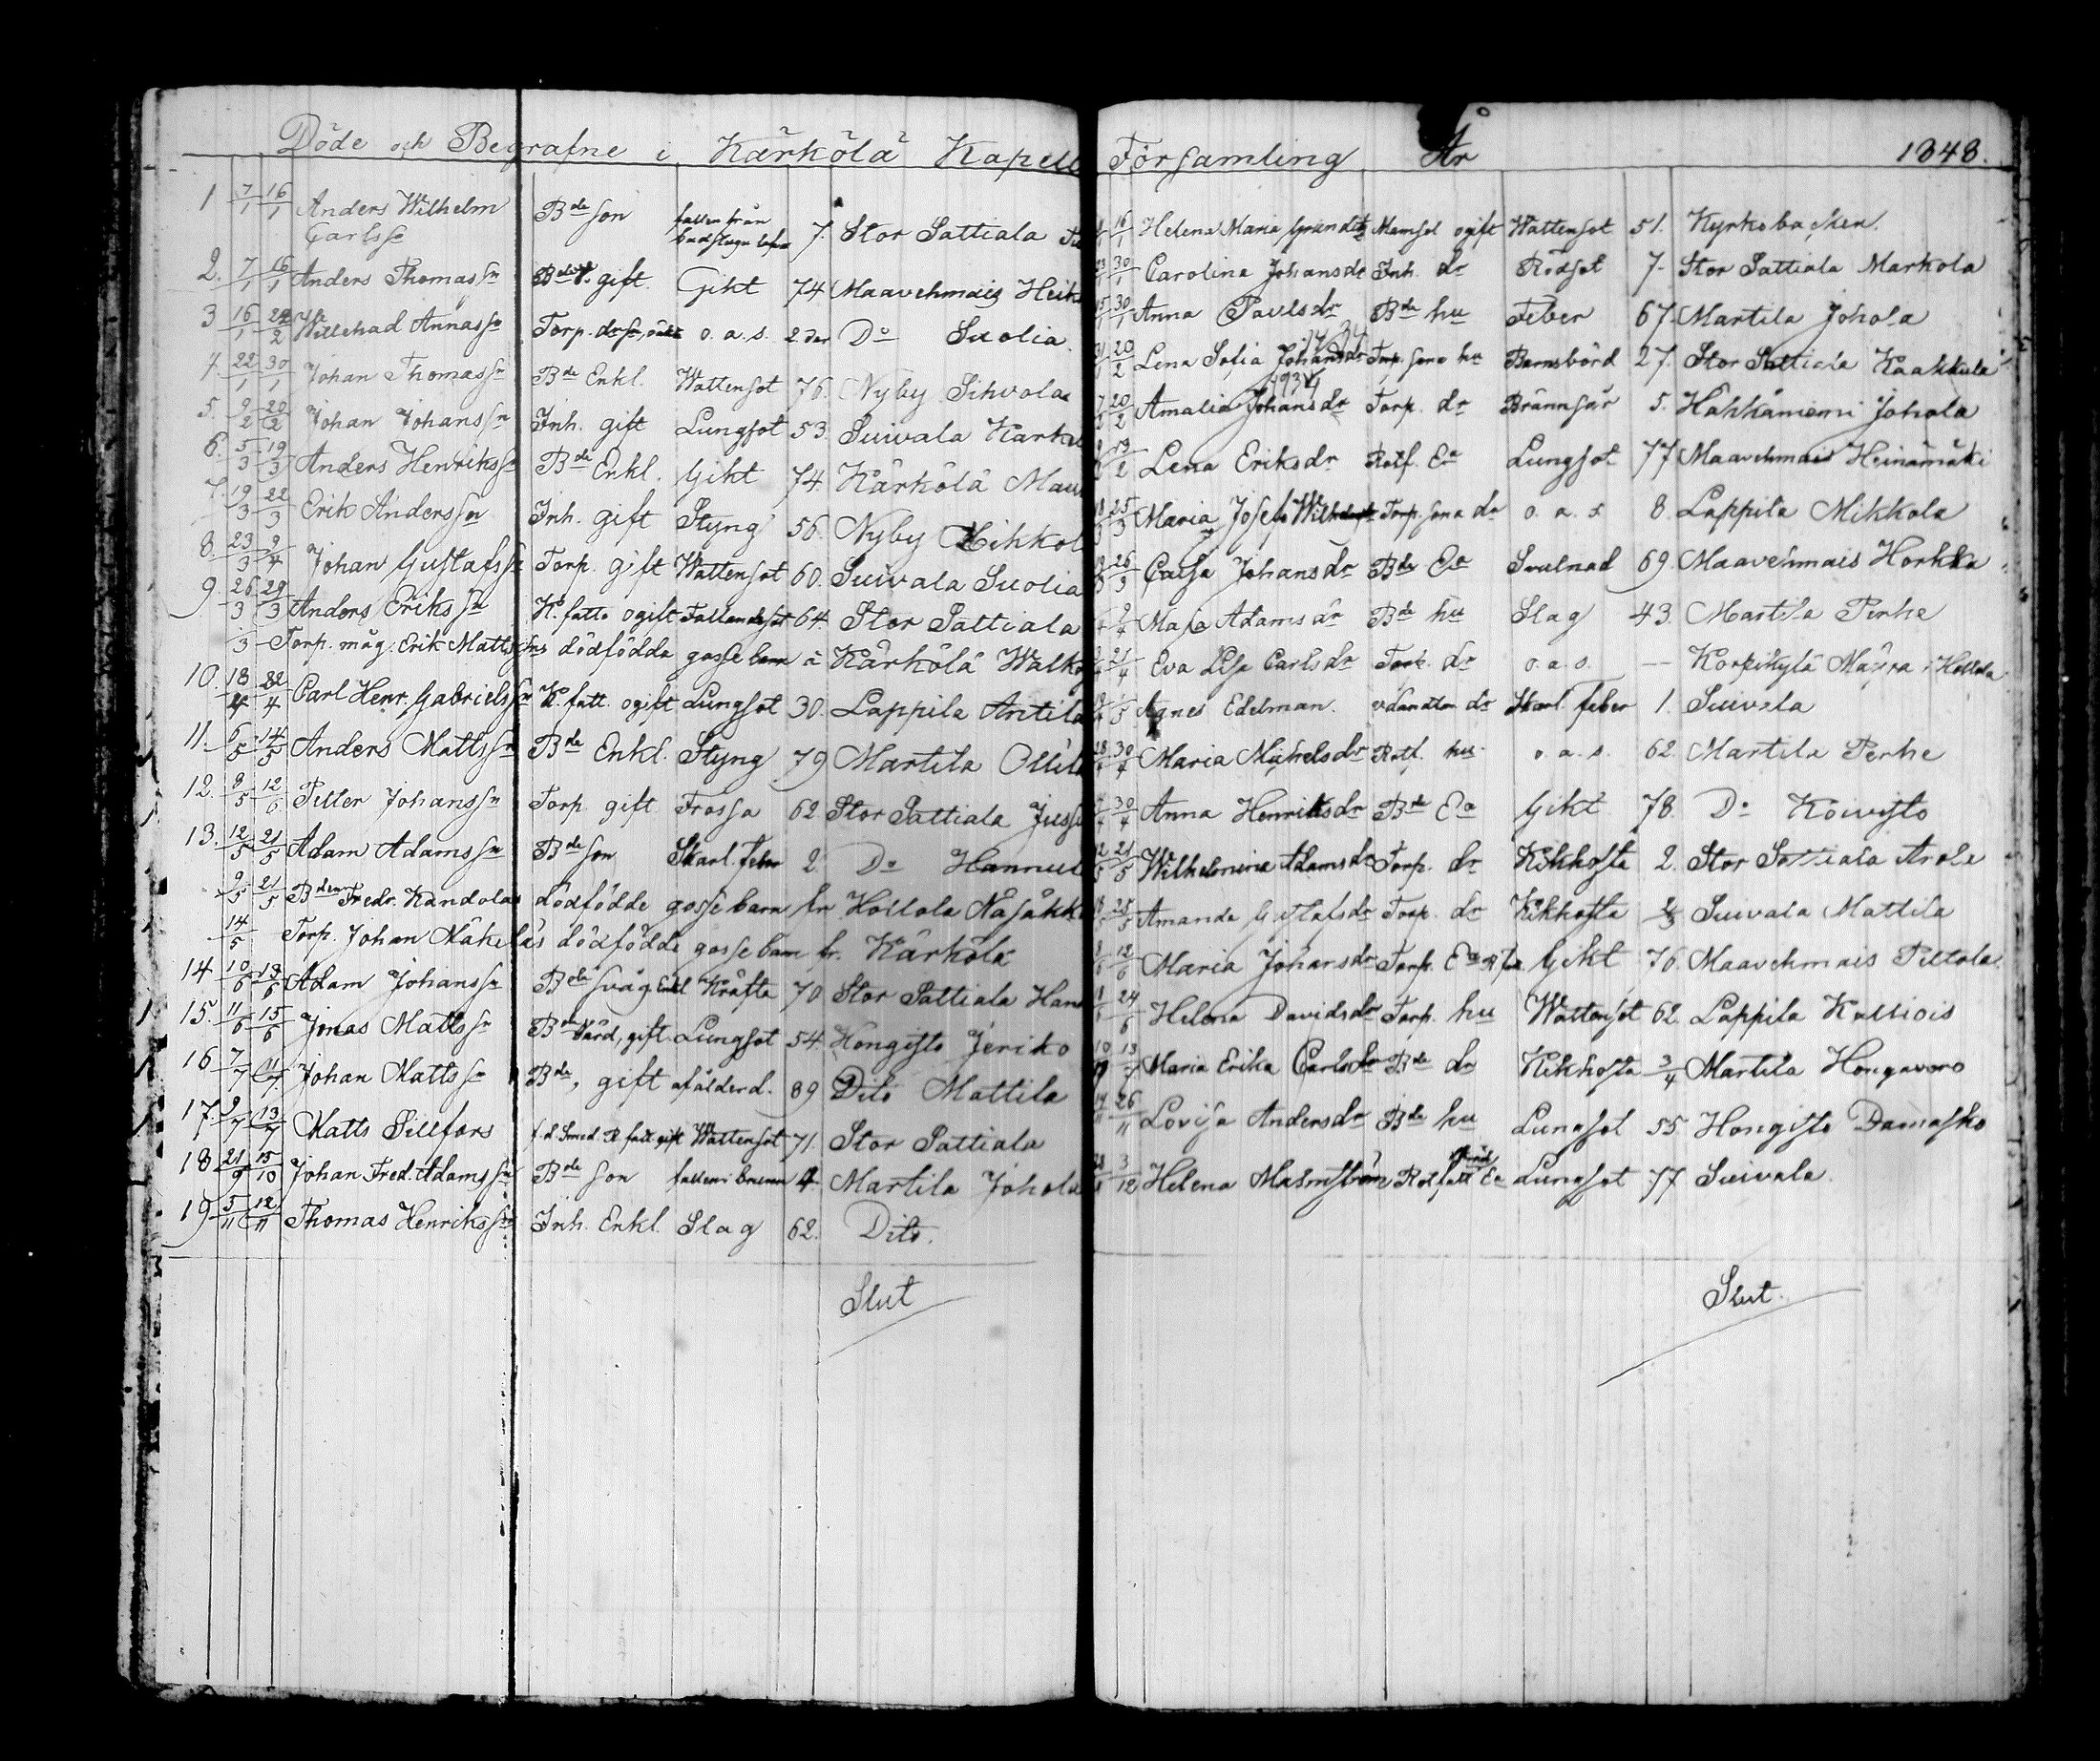 Döde och Begrafne i Kärkölä Kapell
1 7/1 16/1 Anders Wilhelm Carlsso Bde son fallen från badstugu lafve 7. Stor Sattiala
2. 7/1 16/1 Anders Thomassn gift. Gikt 74 Maavehmais Heik
3 16/1 Willehad Annasso Torp. o. a. s. 2 dar Do Suolia.
4. 22/1 30/1 Johan Thomassn Bde Enkl. Wattensot 76. Nyby Sihvola
5. 9/2 20/2 Johan Johanssn Inh. gift Lungsot 53. Suivala Karke
6. 5/3 19/3 Anders Henrikssn Bde Enkl. Gikt 74. Kärkölä Mau
7. 19/3 22/3 Erik Anderssn Inh. gift Styng 56. Nyby Mikkol
8. 23/3 9/4 Johan Gustafssn Torp. gift Wattensot 60. Suivala Suolia
9 26/3 29/3 Anders Erikssn K. fatt. ogift Fallandesot 64. Stor Sattiala
3 Torp. måg. Erik Mattssns dödfödda gosse barn å Kärkölä Walko
10. 18/4 22/4 Carl Henr. Gabrielssn K. fatt. ogift Lungsot 30. Lappila Antila
11. 6/5 14/5 Anders Mattssn Bde Enkl. Styng 79 Martila Ollila
12. 9/5 12/6 Petter Johanssn Torp. gift Frossa 62 Stor Sattiala Juss
13. 12/5 21/5 Adam Adamssn Bde son Skarl. feber 2. Do Hannul
9/5 21/5 Bden Fredr. Kandolas dödfödde gosse barn fr Hollola Nasakk
14/5 Torp. Johan Mäkeläs dödfödde gosse barn fr. Kärkölä
14 10/6 13/6 Adam Johanssn Bde svåg. Enkl Kräfta 70 Stor Sattiala Han
15. 11/6 15/6 Jonas Mattssn Bde Värd, gift. Lungsot 54. Hongisto Jeriko
16 7/7 11/7 Johan Mattssn Bde, gift afålderd. 89 Dito Mattila
17. 9/7 13/7 Matts Sillfors f.d. Smed. R. fatt. gift Wattensot 71. Stor Sattiala
18 21/9 15/10 Johan Fred. Adamssn Bde son fallen i brunn 4. Martila Johola
19 5/11 12/11 Thomas Henrikssn Inh. Enkl. Slag 62. Dito.
Slut
Församling År 1848.
16/1 Helena Maria Mamsel ogift Wattensot 51. Kyrkobacken.
30/1 Carolina Johansdr Inh. dr Rödsot 7. Stor Sattiala Markola
30/1 Anna Paulsdr Bde hu Feber 67. Martila Johola
20/2 Lena Sofia Johansdr Torp. sons hu Barnsbörd 27. Stor Sattiala Kaakkula
20/2 Amalia Johansdr Torp. dr Brännsår 5. Hähkäniemi Johola
Lena Eriksdr Rotf. Ea Lungsot 77 Maavehmais Heinämäki
25/3 Maria Josefa Torp. sons dr o. a. s. 8. Lappila Mikkola
26/3 Caisa Johansdr Bde Ea Svulnad 69. Maavehmais Horkka
Maja Adamsdr Bde hu Slag 43. Martila Perhe
21/4 Eva Lisa Carlsdr Torp. dr o. a. s. — Korpikylä Mäyrä i Hollola
Agnes Edelman. dr Skarl. feber 1. Suivala
30/4 Maria Michelsdr Rotf. hu. o. a. s. 62. Martila Perhe
30/4 Anna Henriksdr Bde Ea Gikt 78. Do Kowisto
21/5 Wilhelmina Adamsdr Torp. dr Kikhosta 2. Stor Sattiala Arola
25/5 Amanda Gustafsdr Torp. dr Kikhosta Suivala Mattila
12/6 Maria Johansdr Torp. Ea Gikt 76. Maavehmais Pietola.
24/6 Helena Davidsdr Torp. hu Wattensot 62. Lappila Kalliois
13/7 Maria Erika Carlsdr Bde dr Kikhosta 3/4 Martila Hongavoro
26/11 Lovisa Andersdr Bde hu Lungsot 55. Hongisto Damasko
3/12 Helena Malmström Rotfatt Ea Lungsot 77. Suivala.
Slut.